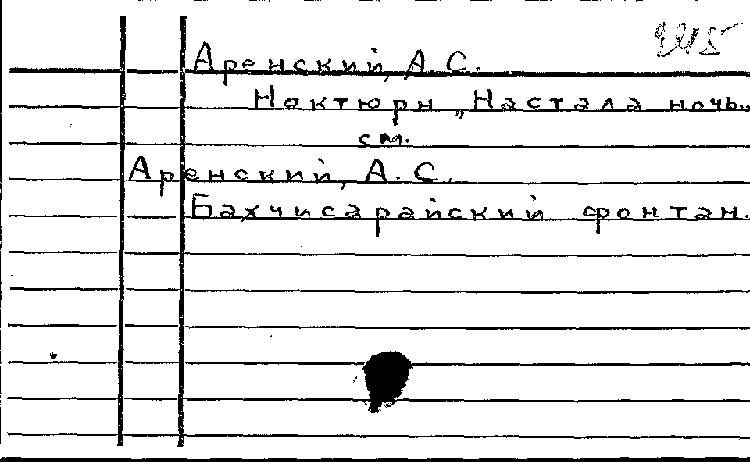 Аренский, А.С.
Ноктюрн „Настала ночь„
см.
Аренский, А.С.
Бахчисарайский фонтан.